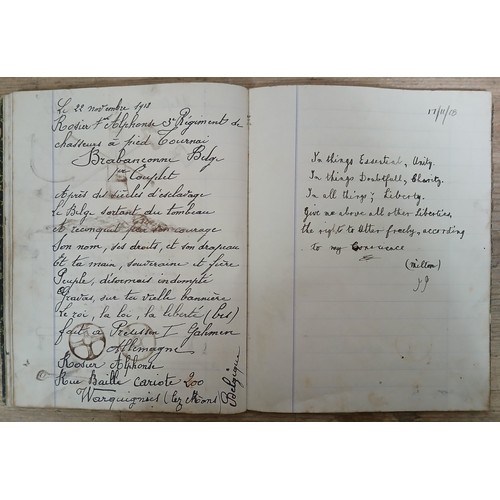 Le 22 novembre 1918
Rosier Alphonse 3e Régiment de
chasseurs à pied Tournai
Brabançonne Belge
1er Couplet
Après des siècles d'esclavage
Le Belge sortant du tombeau
A reconquit par son courage
Son nom, ses droits, et son drapeau
Et ta main, souveraine et fière
Peuple, désormais indompté
Gravas, sur ta vielle bannière
Le roi, la loi, la liberté (bis)
fait à
Allemagne
Rosier Alphonse
Rue Baille cariote 200
Warquignies (lez Mons
Belgique
17/11/18
In things Essential, Unity.
In things Doubtfull, Charity.
In all things, Liberty.
Give me above all other Liberties,
the right to Utter freely, according
to my
(Milton)